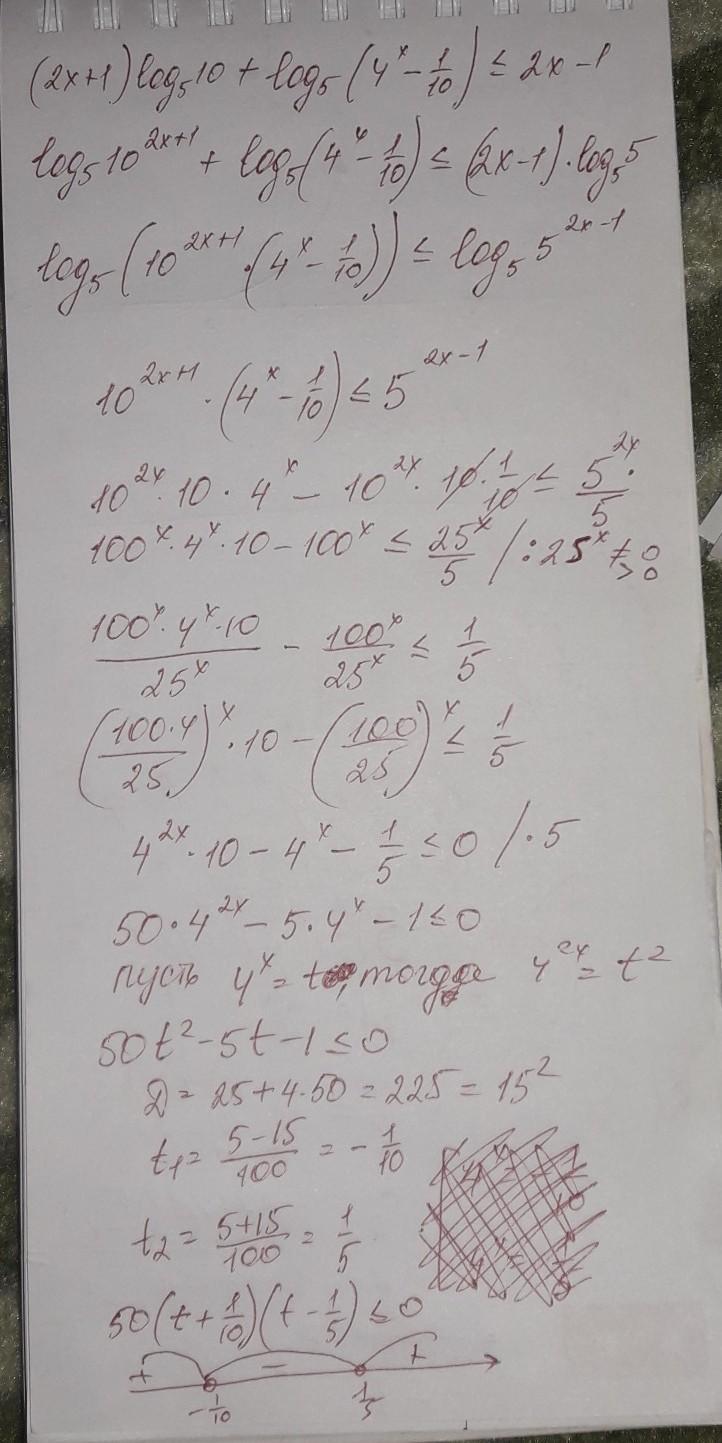 (2x+1)log₅10 + log₅(4ˣ - 1/10) ≤ 2x - 1
log₅10²ˣ⁺¹ + log₅(4ˣ - 1/10) ≤ (2x-1)·log₅5
log₅(10²ˣ⁺¹·(4ˣ - 1/10)) ≤ log₅5²ˣ⁻¹
10²ˣ⁺¹·(4ˣ - 1/10) ≤ 5²ˣ⁻¹
10²ˣ·10·4ˣ - 10²ˣ·10·1/10 ≤ 5²ˣ·/5
100ˣ·4ˣ·10 - 100ˣ ≤ 25ˣ/5 /:25ˣ ≠ 0
> 0
100ˣ·4ˣ·10/25ˣ - 100ˣ/25ˣ ≤ 1/5
(100·4/25)ˣ·10 - (100/25)ˣ ≤ 1/5
4²ˣ·10 - 4ˣ - 1/5 ≤ 0 /·5
50·4²ˣ - 5·4ˣ - 1 ≤ 0
пусть 4ˣ = t, тогда 4²ˣ = t²
50t² - 5t - 1 ≤ 0
D = 25 + 4·50 = 225 = 15²
t₁ = (5-15)/100 = -1/10
t₂ = (5+15)/100 = 1/5
50(t + 1/10)(t - 1/5) ≤ 0
+ - +
-1/10 1/5